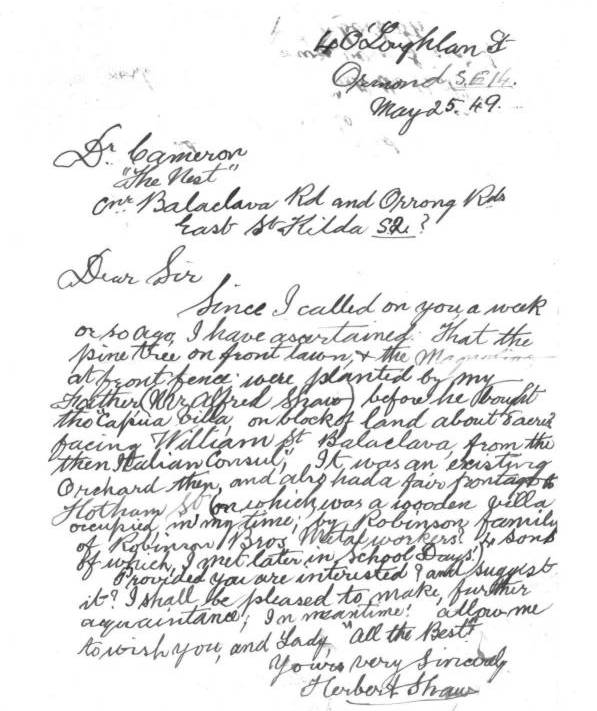 4 O'Loughlan St
Ormond S.E.14.
May 25. 49.
Dr. Cameron
"The Nest"
cnr Balaclava Rd and Orrong Rds
East St Kilda S2. ?
Dear Sir
Since I called on you a week
or so ago, I have ascertained. That the
pine tree on front lawn, & the Magnolia
at front fence were planted by my
Father (Mr Alfred Shaw) before he bought
the "Capua Villa, on block of land about 5 acres?
facing William St Balaclava, from the
then Italian Consul", It was an existing
Orchard then, and also had a fair frontage to
Hotham St (on which was a wooden villa
occupied, in my time, by Robinson family
of Robinson Bros' Metal workers? 4 sons
of which, I met later in School Days!)
Provided you are interested? and suggest
it? I shall be pleased to make, further
acquaintance; In meantime! allow me
to wish you, and Lady, "All the Best"
Yours very Sincerely
Herbert Shaw